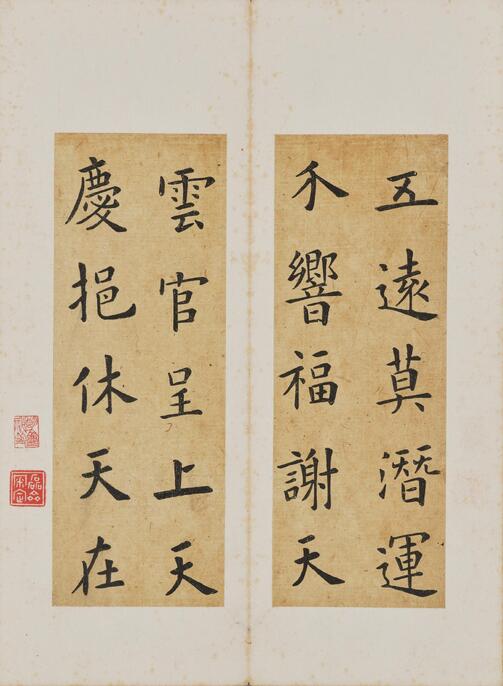 五遠莫潛運
響福謝天
雲官呈上天
慶挹休天在